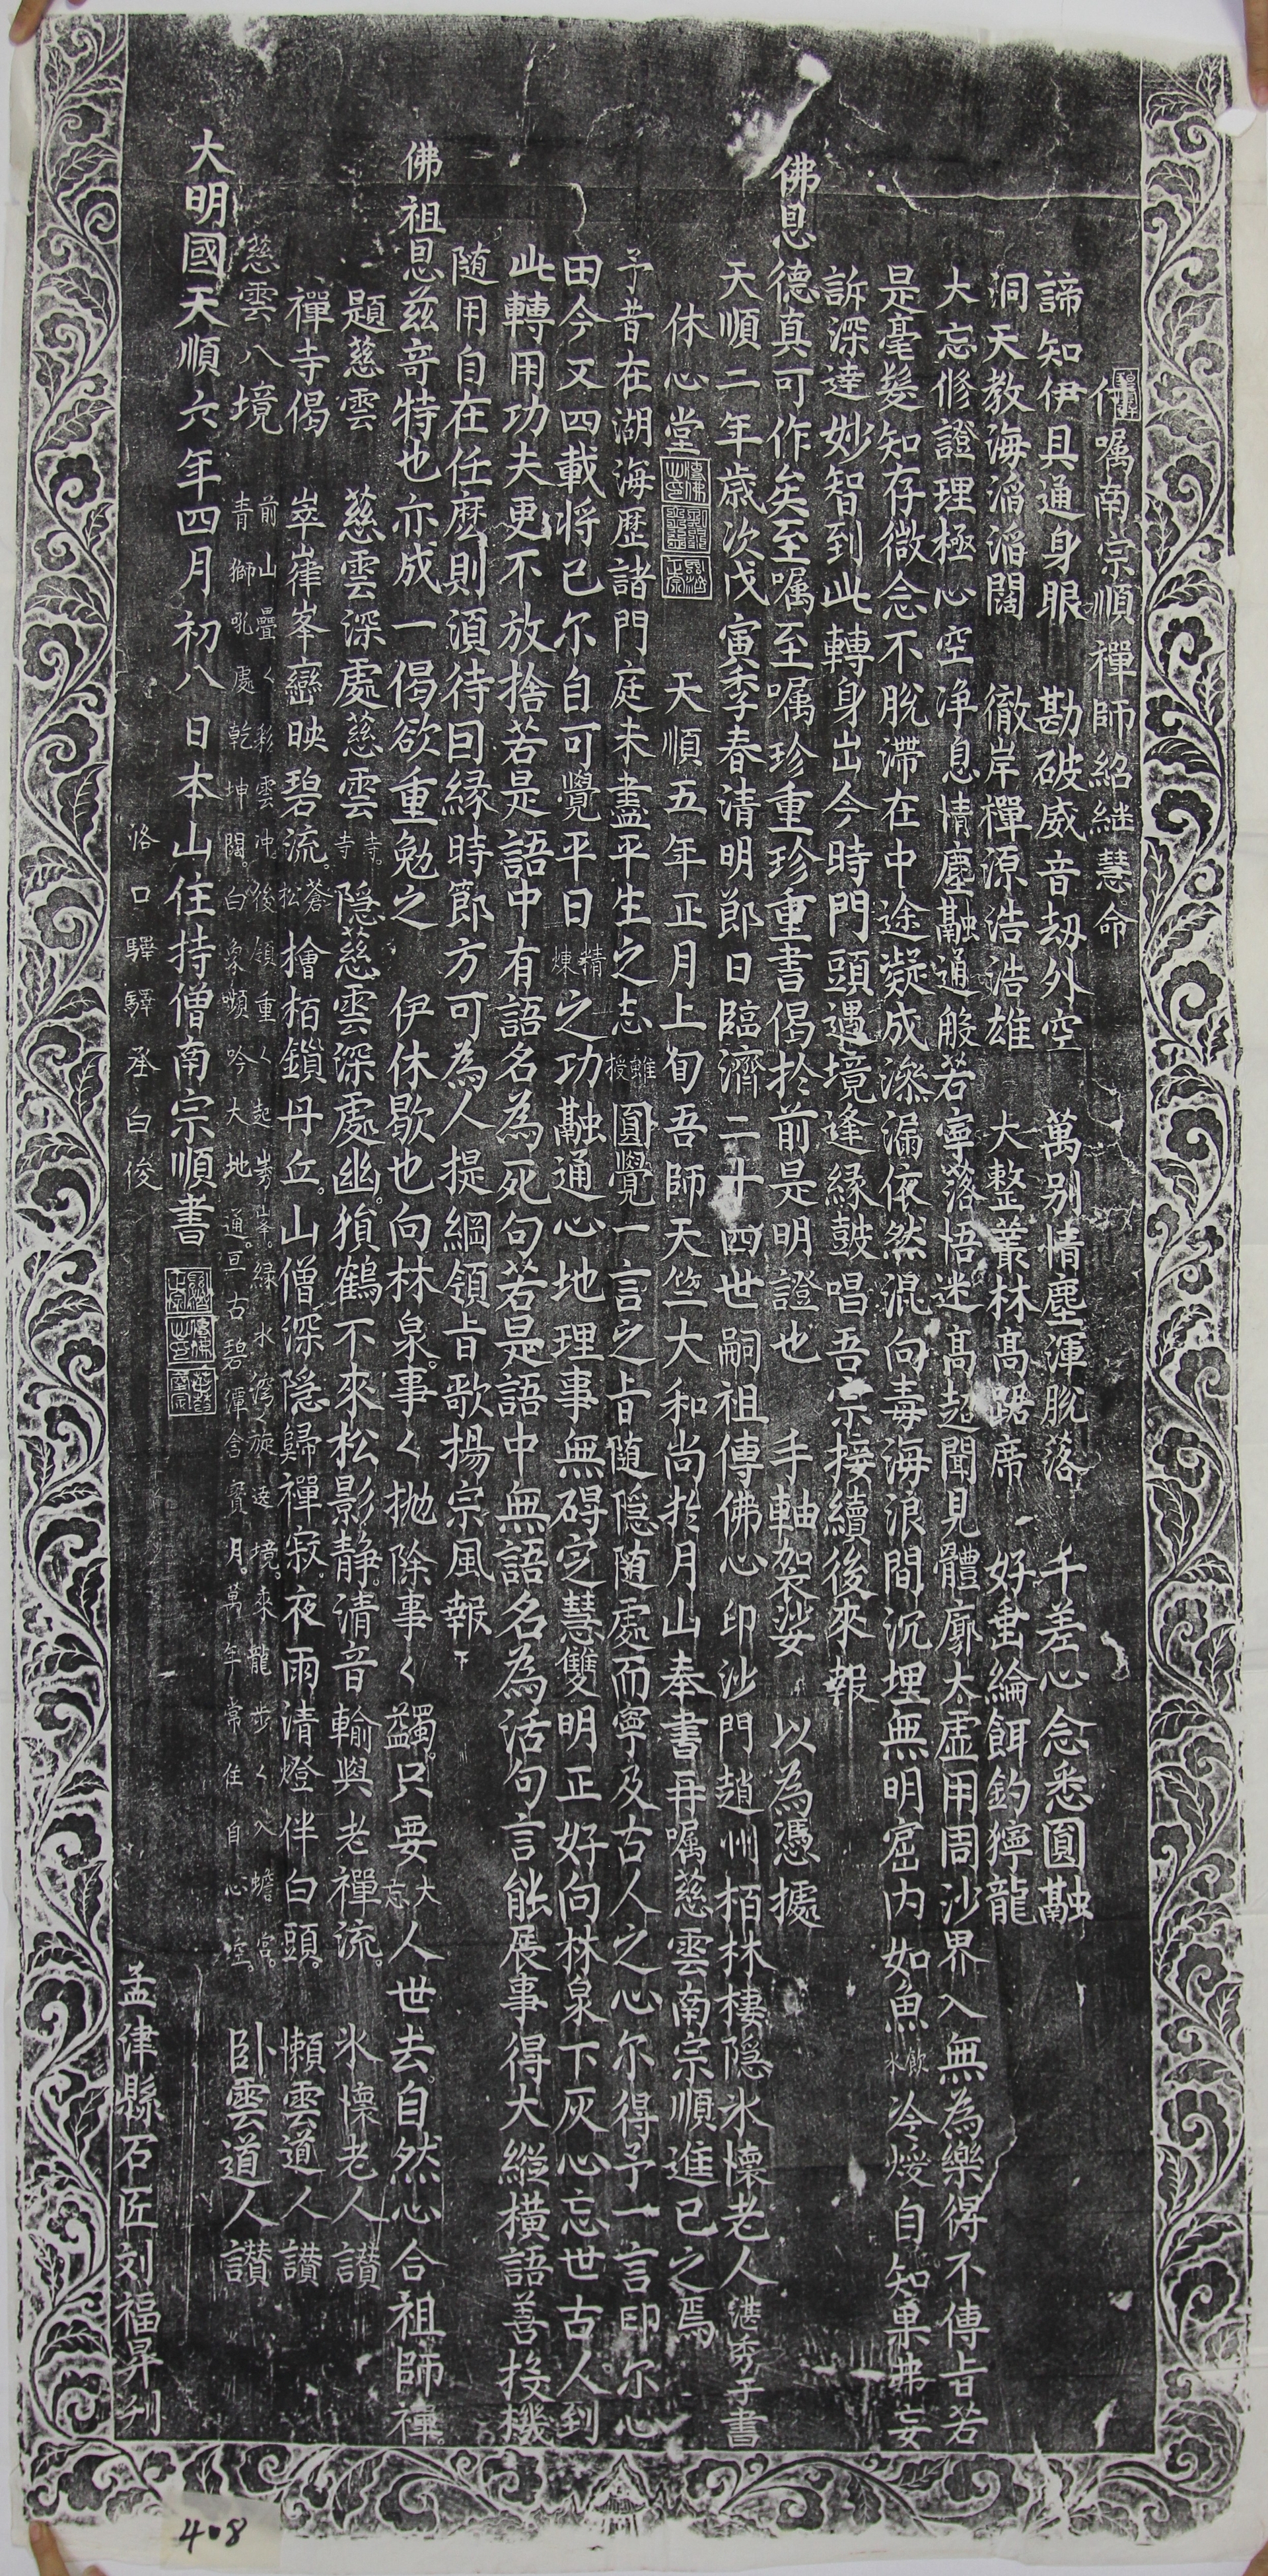 付嘱南宗順禪師紹継慧命
諦知伊具通身眼　勘破威音劫外空　萬别情塵渾脫落　千差心念悉圓融
洞天教海滔滔闊　徹岸禪源浩浩雄　大整叢林髙踞席　好垂綸餌釣獰龍
大忘修證理極心空净息情塵融通般若寜落悟迷髙超聞見體廓大虚用周沙界入無為樂得不傳旨若
是毫髮知存微念不脫滯在中途凝成滲漏依然混向毒海浪間沉埋無明窟内如魚飲水冷煖自知果弗妄
訴深達妙智到此轉身出今時門頭遇境逢縁皷唱吾宗接續後來報
佛恩德真可作矣至嘱至嘱珍重珍重書偈於前是明證也　手軸袈裟　以為憑據
天順二年歳次戊寅季春清明郎日臨濟二十四世嗣祖傳佛心印沙門趙州栢林棲隐氷懷老人湛秀手書
休心堂　天順五年正月上旬吾師天竺大和尚於月山奉書再嘱慈雲南宗順進已之焉
予昔在湖海歷諸門庭未盡平生之志雖授圓覺一言之旨随隐随處而寧及古人之心尔得予一言印尔心
田今又四載将已尔自可覺平日精煉之功融通心地理事無碍定慧雙明正好向林泉下灰心忘世古人到
此轉用功夫更不放捨若是語中有語名為死句若是語中無語名為活句言能展事得大縱横語善投機
随用自在任麽則須待因縁時節方可為人提綱領旨歌揚宗風報下
佛祖恩兹奇特也亦成一偈欲重勉之　伊休歇也向林泉事〻抛除事〻蠲只要大忘人世去自然心合祖師禪
題慈雲　慈雲深處慈雲寺寺隐慈雲深處幽猿鶴不來松影静清音輸與老禪流　氷懷老人讃
禪寺偈　崒嵂峯巒映碧流蒼松檜栢鎖丹丘山僧深隐歸禪寂夜雨清燈伴白頭　懶雲道人讃
慈雲八境　前山疊〻彩雲冲後嶺重〻起秀峯緑水灣〻旋遶境來龍步〻入蟾宫
青獅吼處乾坤闊白象嚬吟大地通亘古碧潭含寳月萬年常住自心空　卧雲道人讃
大明國天順六年四月初八日本山住持僧南宗順書
洛口驛驛丞白俊
孟津縣石匠刘福昇刋
408